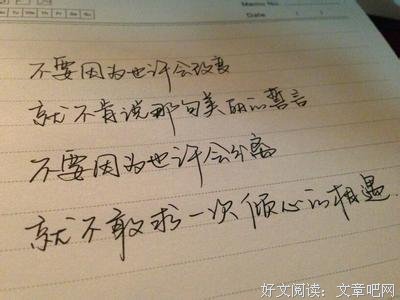 Memo No.
Mo Tu We Th Fr Sa Su
Date
不要因为也许会改变
就不肯说那句美丽的誓言
不要因为也许会分离
就不敢求一次倾心的相遇
好文阅读：文章吧网